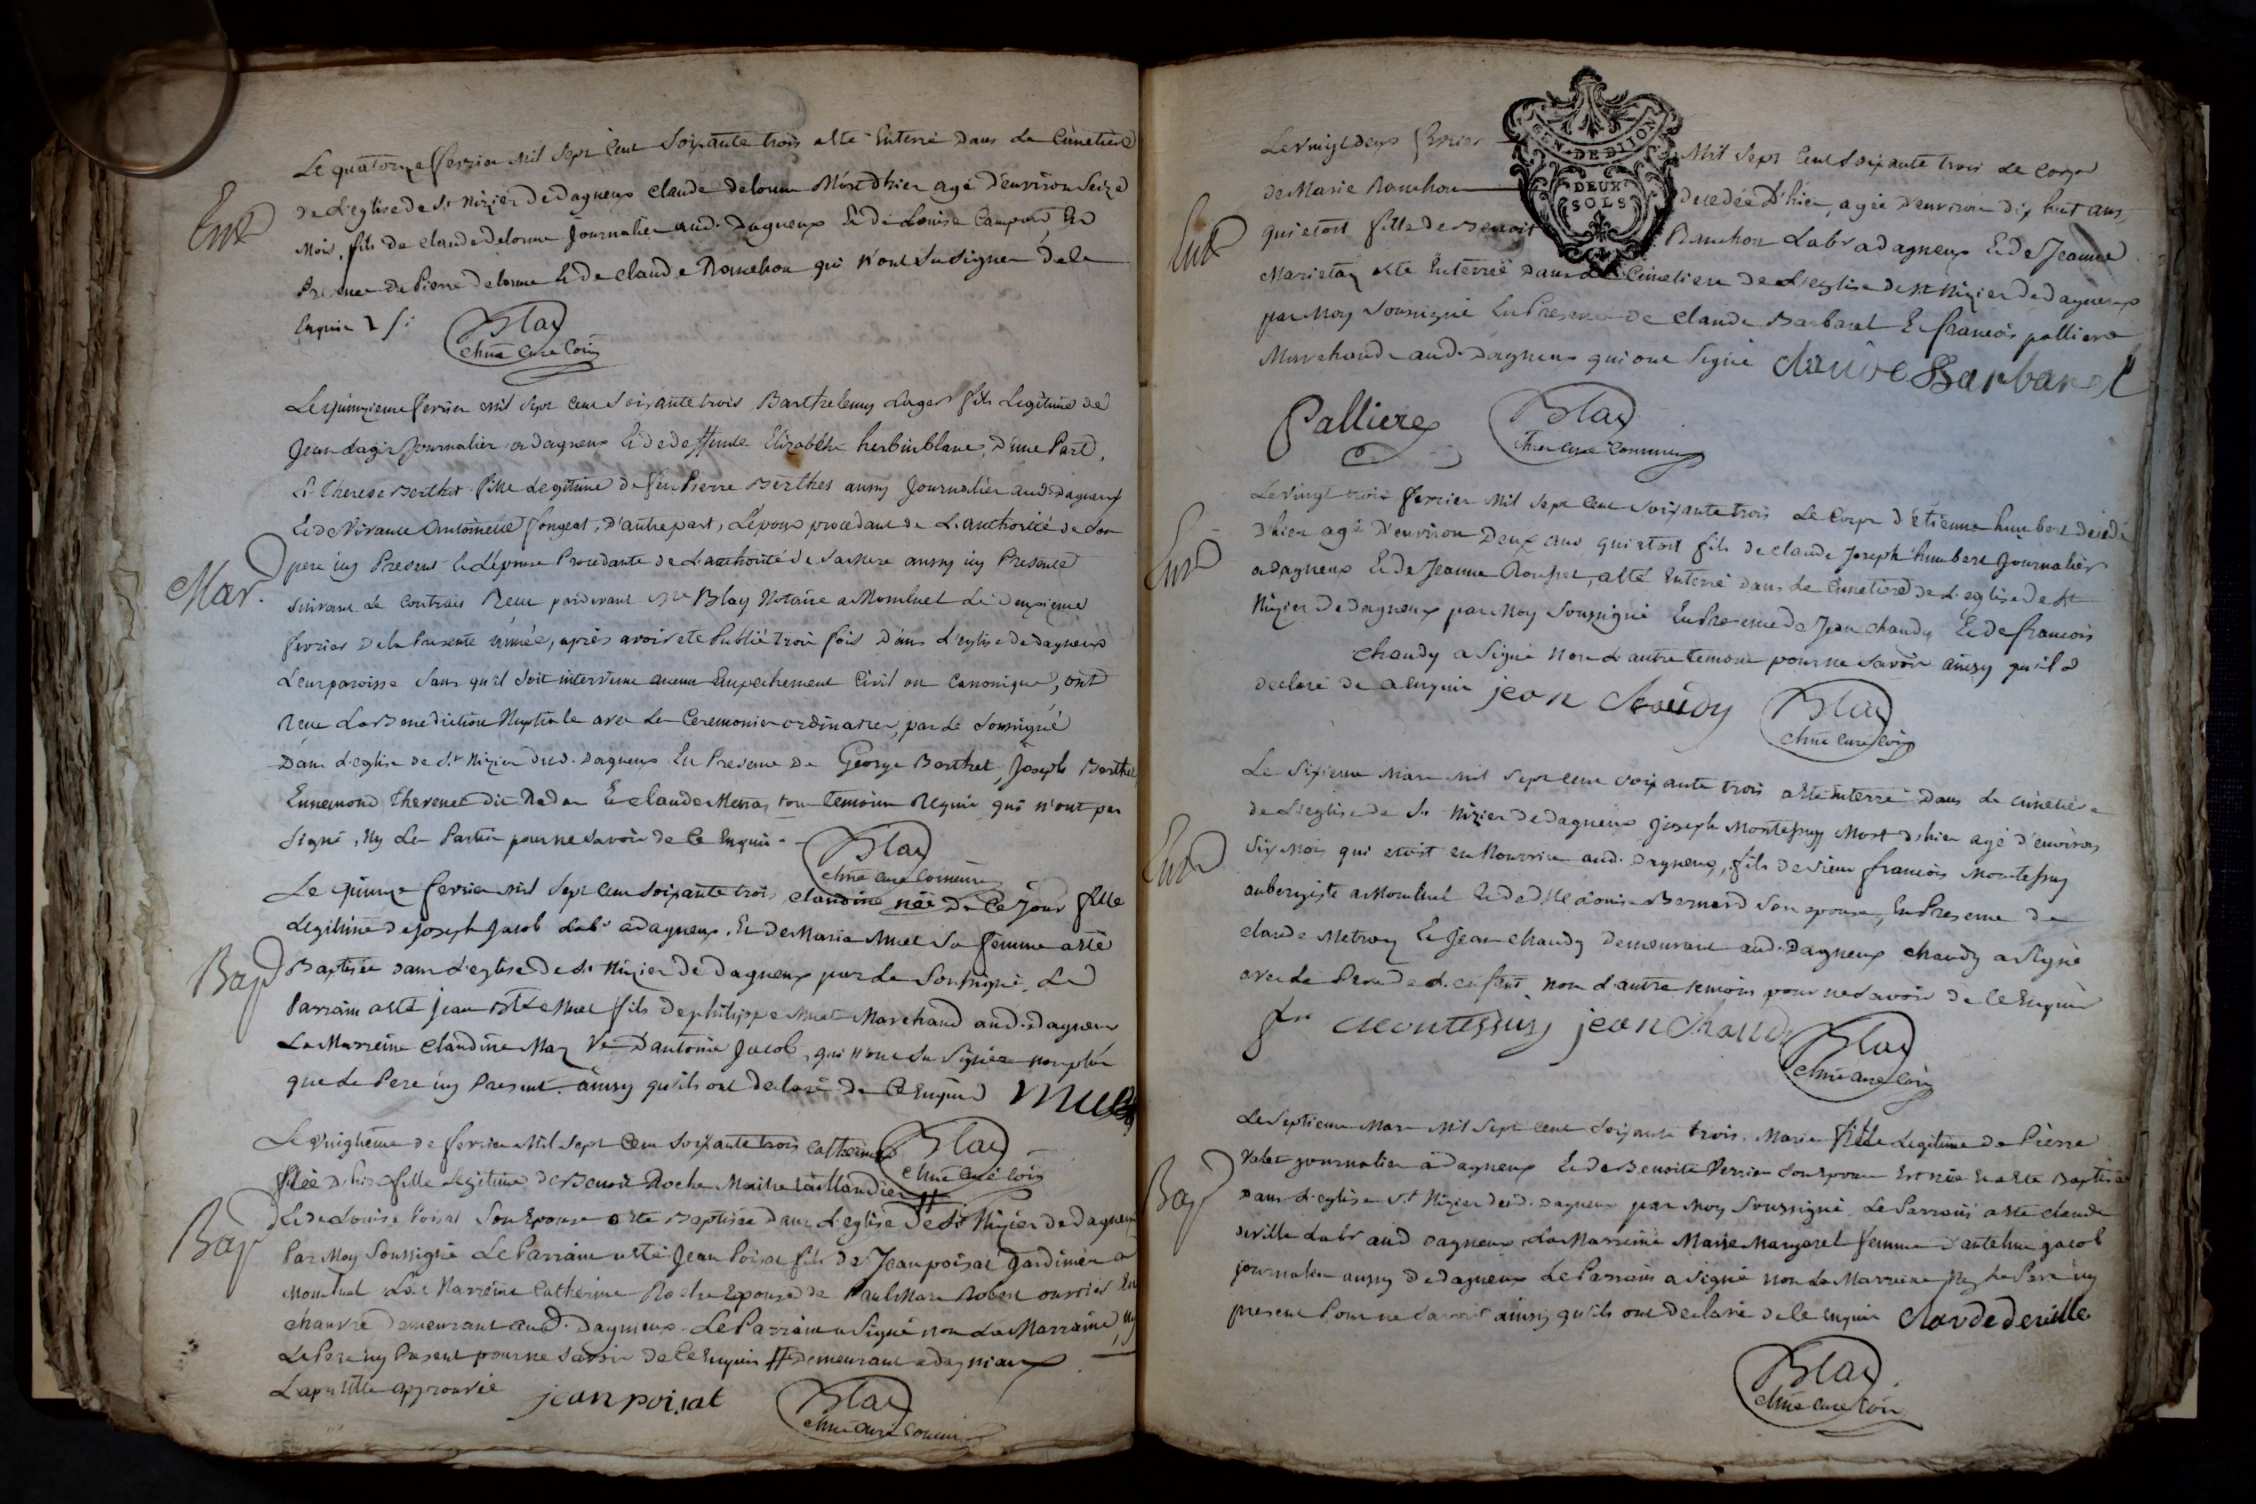 Le quatorze fevrier mil sept cent soixante trois a été Enterré dans Le Cimetiere
Ent
de L'eglise de St Nizier de Dagneux claude delorme Mort d'hier agé d'environ Seize
Mois, fils de claude delorme Journalier aud. Dagneux & de Louise En
Presence de Pierre delorme & de claude Ranchon qui n'ont Su Signer de ce
Enquis
Blay
chne curé Coms
Le quinzieme fevrier mil sept cent soixante trois, Barthelemy Lager fils Legitime de
Jean Lager Journalier a Dagneux & de deffunte Elizabeth herbinblanc, d'une Part,
Et Therese Berthet fille Legitime de feu Pierre Berthet aussy Journalier aud. Dagneux
Et de vivante Antoinette fongeat, d'autre part, L'epoux procedant de L'authorité de son
Mar.
pere icy Present & L'épouse Procedante de L'authorité de Sa Mere aussy icy Presente
suivant Le Contrat Reçu pardevant Me Blay Notaire a Montluel Le deuxieme
fevrier de la Presente année, après avoir eté Publié trois fois dans L'eglise de Dagneux
Leur paroisse Sans qu'il soit intervenu aucun Empechement Civil ou Canonique, ont
Recu La Benediction Nuptiale avec Les Ceremonies ordinaires, par Le Soussigné
Dans L'eglise de St Nizier dud. Dagneux En Presence de George Berthet, Joseph Berthet
Ennemond Thevenet dit Nadan & claude Metras tous temoins Requis qui n'ont pas
Signé, Ny Les Parties pour ne Savoir de Ce Enquis.
Blay
chne curé Comms
Le quinze fevrier mil sept cent soixante trois, claudine née De Ce Jour fille
Legitime de Joseph Jacob Labr a Dagneux, Et de Marie Muet Sa femme a eté
Bap
Baptisée dans L'eglise de St Nizier de Dagneux par Le Soussigné. Le
Parrain a eté Jean Bte Muet fils de philippe Muet Marchand aud. Dagneux
La Marreine claudine Ve D'antoine Jacob, qui n'ont Su Signer non plus
que Le Pere icy Present ainsy qu'ils ont declaré De Ce Enquis Muet
Le vingtieme de fevrier Mil Sept Cent Soixante trois Catherine
Blay
chne curé Coms
Née d'hier fille Legitime de Benoit Roche Maitre taillandier #
Bap
Et de Louise Poisat Son Epouse a eté Baptisée dans L'eglise de St Nizier de Dagneux
Par Moy Soussigné Le Parrain a eté Jean Poisat fils de Jean poisat Jardinier a
Montluel La Marreine Catherine Roche Epouse de Paul Marc Robert ouvrier En
chanvre demeurant aud. Dagneux. Le Parrain a Signé non La Marraine, ny
Le Pere icy Present pour ne Savoir de Ce Enquis # demeurant a Dagnieux
L'apostille approuvée jean poisat
Blay
chne curé Commis
Le vingt deux fevrier Mil Sept Cent Soixante trois Le Corps
GEN. DE DIJON
DEUX
SOLS
Ent
de Marie Ranchon decedée d'hier, agée d'environ dix huit ans,
qui etoit fille de Benoit Ranchon Labr a Dagneux & de Jeanne
a eté Enterrée dans Le Cimetiere de L'eglise de St Nizier de Dagneux
par Moy Soussigné En Presence de Claude Barbaret & francois palliere
Marchands aud. Dagneux qui ont Signé claude Barbaret
Palliere
Blay
chne curé Commis
Le vingt trois fevrier Mil Sept Cent Soixante trois Le Corps d'étienne humbert décédé
Ent
d'hier agé d'environ Deux ans qui etoit fils de claude Joseph humbert Journalier
a Dagneux & de Jeanne Rousset, a eté Enterré dans Le Cimetiere de L'eglise de St
Nizier de Dagneux par Moy Soussigné En Presence de Jean chaudy & de francois
chaudy a Signé non L'autre temoin pour ne Savoir ainsy qu'il a
declaré de ce enquis jean chaudy
Blay
chne curé Coms
Le Sixieme Mars Mil Sept Cent Soixante trois a eté Enterré dans Le Cimetiere
de L'eglise de St Nizier de Dagneux Joseph Montessuy Mort d'hier agé d'environ
Ent
Six Mois qui etoit en Nourrice aud. Dagneux, fils de Sieur francois Montessuy
aubergiste a Montluel & de dlle Louise Bernard Son epouse, En Presence de
claude Metroz & Jean chaudy demeurant aud. Dagneux chaudy a Signé
avec Le Pere de L'enfant, non L'autre temoin pour ne Savoir de Ce Enquis
fr Montessuy jean chaudy
Blay
chne curé Coms
Le Septieme Mars Mil Sept Cent Soixante trois. Marie fille Legitime de Pierre
Valet journalier a Dagneux Et de Benoite Perrier Son Epouse Est née & a eté Baptisée
Bap
Dans L'eglise St Nizier dud. Dagneux par Moy Soussigné Le Parrain a eté claude
deville Labr aud Dagneux, La Marreine Marie Margaret femme D'antelme jacob
journalier aussy de Dagneux Le Parrain a Signé non La Marreine Ny Le Pere icy
present Pour ne Savoir ainsy qu'ils ont declaré de Ce Enquis Claude deville
Blay
chne curé Coms